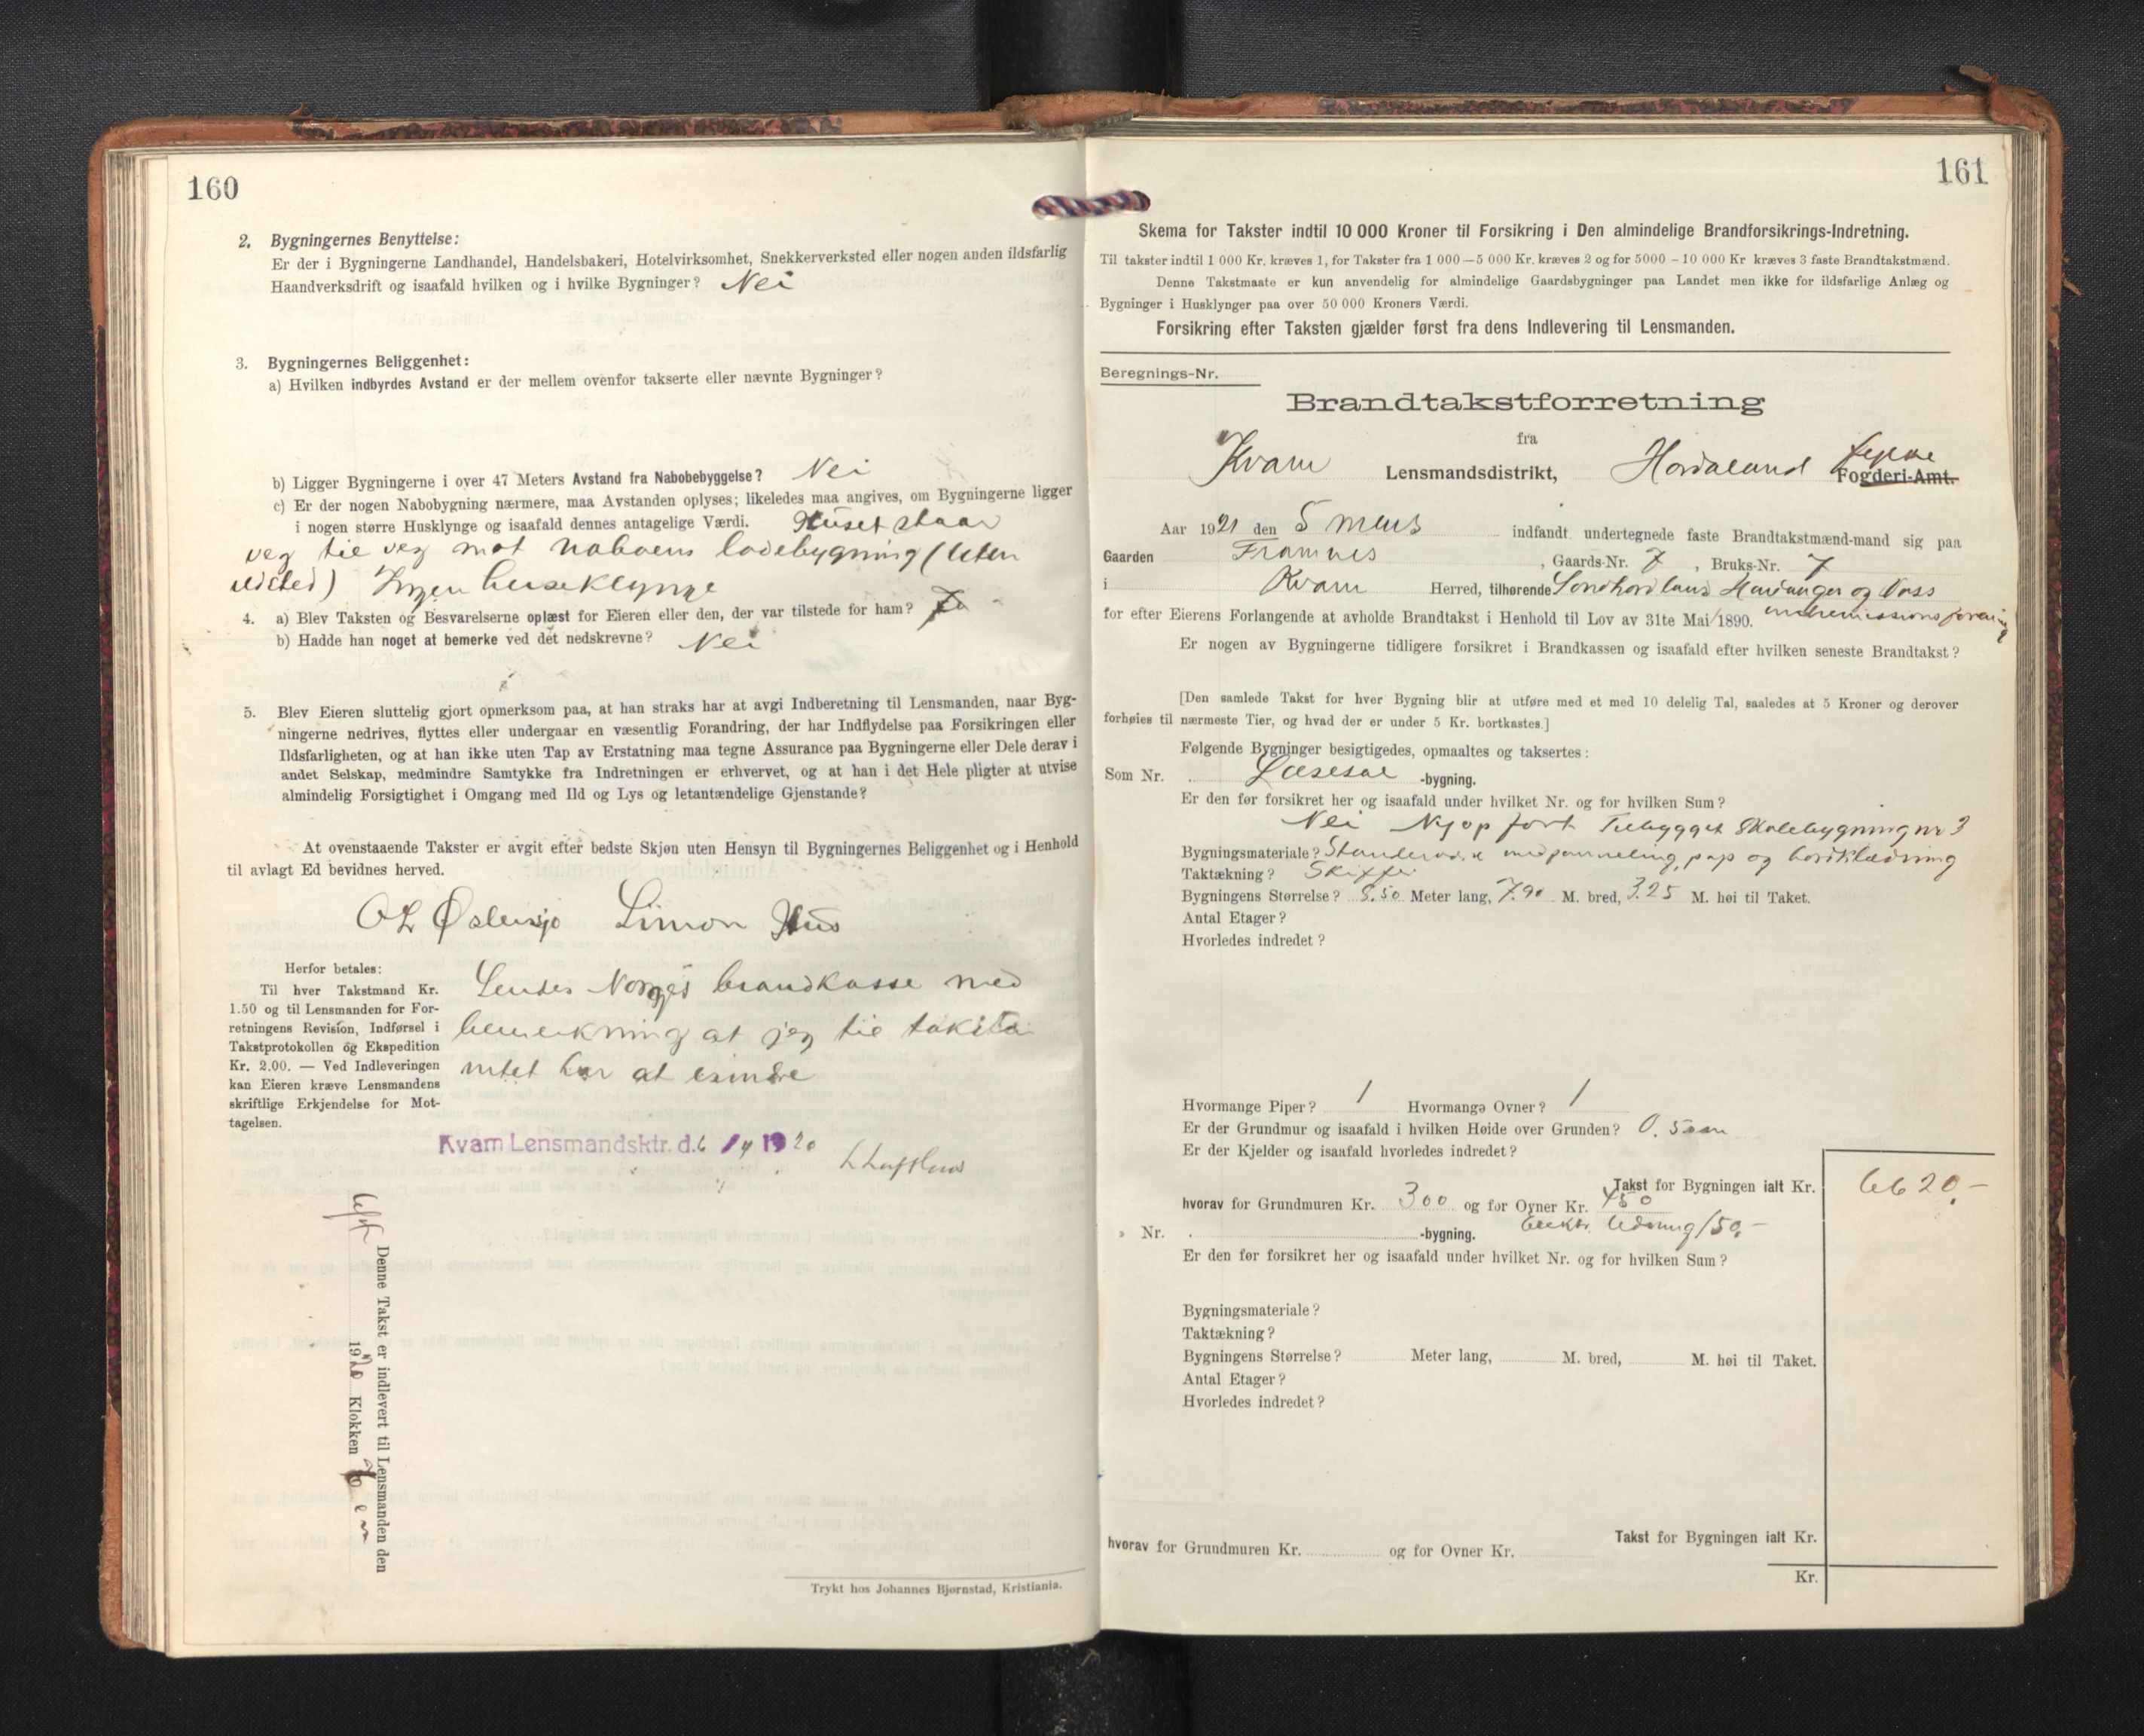 160
2. Bygningernes Benyttelse:
Er der i Bygningerne Landhandel, Handelsbakeri, Hotelvirksomhet, Snekkerverksted eller nogen anden ildsfarlig
Haandverksdrift og isaafald hvilken og i hvilke Bygninger? Nei
3. Bygningernes Beliggenhet:
a) Hvilken indbyrdes Avstand er der mellem ovenfor takserte eller nævnte Bygninger?
b) Ligger Bygningerne i over 47 Meters Avstand fra Nabobebyggelse? Nei
c) Er der nogen Nabobygning nærmere, maa Avstanden oplyses; likeledes maa angives, om Bygningerne ligger
i nogen større Husklynge og isaafald dennes antagelige Værdi. Huset staar
veg til veg mot naboens ladebygning (uten
ildsted) Ingen huseklynge
4. a) Blev Taksten og Besvarelserne oplæst for Eieren eller den, der var tilstede for ham? Ja
b) Hadde han noget at bemerke ved det nedskrevne? Nei
5. Blev Eieren sluttelig gjort opmerksom paa, at han straks har at avgi Indberetning til Lensmanden, naar Byg-
ningerne nedrives, flyttes eller undergaar en væsentlig Forandring, der har Indflydelse paa Forsikringen eller
Ildsfarligheten, og at han ikke uten Tap av Erstatning maa tegne Assurance paa Bygningerne eller Dele derav i
andet Selskap, medmindre Samtykke fra Indretningen er erhvervet, og at han i det Hele pligter at utvise
almindelig Forsigtighet i Omgang med Ild og Lys og letantændelige Gjenstande?
At ovenstaaende Takster er avgit efter bedste Skjøn uten Hensyn til Bygningernes Beliggenhet og i Henhold
til avlagt Ed bevidnes herved.
OL Øslensjo Simon Hus
Herfor betales:
Til hver Takstmand Kr.
1.50 og til Lensmanden for For-
retningens Revision, Indførsel i
Takstprotokollen og Ekspedition
Kr. 2.00. — Ved Indleveringen
kan Eieren kræve Lensmandens
skriftlige Erkjendelse for Mot-
tagelsen.
Sendes Norges brandkasse med
bemerkning at jeg til taksten
intet har at erindre
Kvam Lensmandsktr. d. 6/4 1920
Denne Takst er indlevert til Lensmanden den
6/4 1920 Klokken
Trykt hos Johannes Bjørnstad, Kristiania.
161
Skema for Takster indtil 10 000 Kroner til Forsikring i Den almindelige Brandforsikrings-Indretning.
Til takster indtil 1 000 Kr. kræves 1, for Takster fra 1 000—5 000 Kr. kræves 2 og for 5000 - 10 000 Kr kræves 3 faste Brandtakstmænd.
Denne Takstmaate er kun anvendelig for almindelige Gaardsbygninger paa Landet men ikke for ildsfarlige Anlæg og
Bygninger i Husklynger paa over 50 000 Kroners Værdi.
Forsikring efter Taksten gjælder først fra dens Indlevering til Lensmanden.
Beregnings-Nr.
Brandtakstforretning
fra
Kvam Lensmandsdistrikt, Hordaland fylke Fogderi-Amt.
Aar 1921 den 5 mars indfandt undertegnede faste Brandtakstmænd-mand sig paa
Gaarden Framnes , Gaards-Nr. 7 , Bruks-Nr. 7
i Kvam Herred, tilhørende Søndhordland Hardanger og Voss
for efter Eierens Forlangende at avholde Brandtakst i Henhold til Lov av 31te Mai 1890. indremissionsforening
Er nogen av Bygningerne tidligere forsikret i Brandkassen og isaafald efter hvilken seneste Brandtakst?
[Den samlede Takst for hver Bygning blir at utføre med et med 10 delelig Tal, saaledes at 5 Kroner og derover
forhøies til nærmeste Tier, og hvad der er under 5 Kr. bortkastes.]
Følgende Bygninger besigtigedes, opmaaltes og taksertes:
Som Nr. Læsesal -bygning.
Er den før forsikret her og isaafald under hvilket Nr. og for hvilken Sum?
Nei Nyop ført Tilbygget Skolebygning nr 3
Bygningsmateriale? Stenderverk med panneling, pap og bordklædning
Taktækning? Skiffer
Bygningens Størrelse? 8.50 Meter lang, 7.90 M. bred, 3.25 M. høi til Taket.
Antal Etager?
Hvorledes indredet?
Hvormange Piper? 1 Hvormange Ovner? 1
Er der Grundmur og isaafald i hvilken Høide over Grunden? 0.50 m
Er der Kjelder og isaafald hvorledes indredet?
Takst for Bygningen ialt Kr. 6620.-
hvorav for Grundmuren Kr. 300 og for Ovner Kr. 450
elektr. ledning 150,-
» Nr. -bygning.
Er den før forsikret her og isaafald under hvilket Nr. og for hvilken Sum?
Bygningsmateriale?
Taktækning?
Bygningens Størrelse? Meter lang, M. bred, M. høi til Taket.
Antal Etager?
Hvorledes indredet?
Takst for Bygningen ialt Kr.
hvorav for Grundmuren Kr. og for Ovner Kr.
Kr.